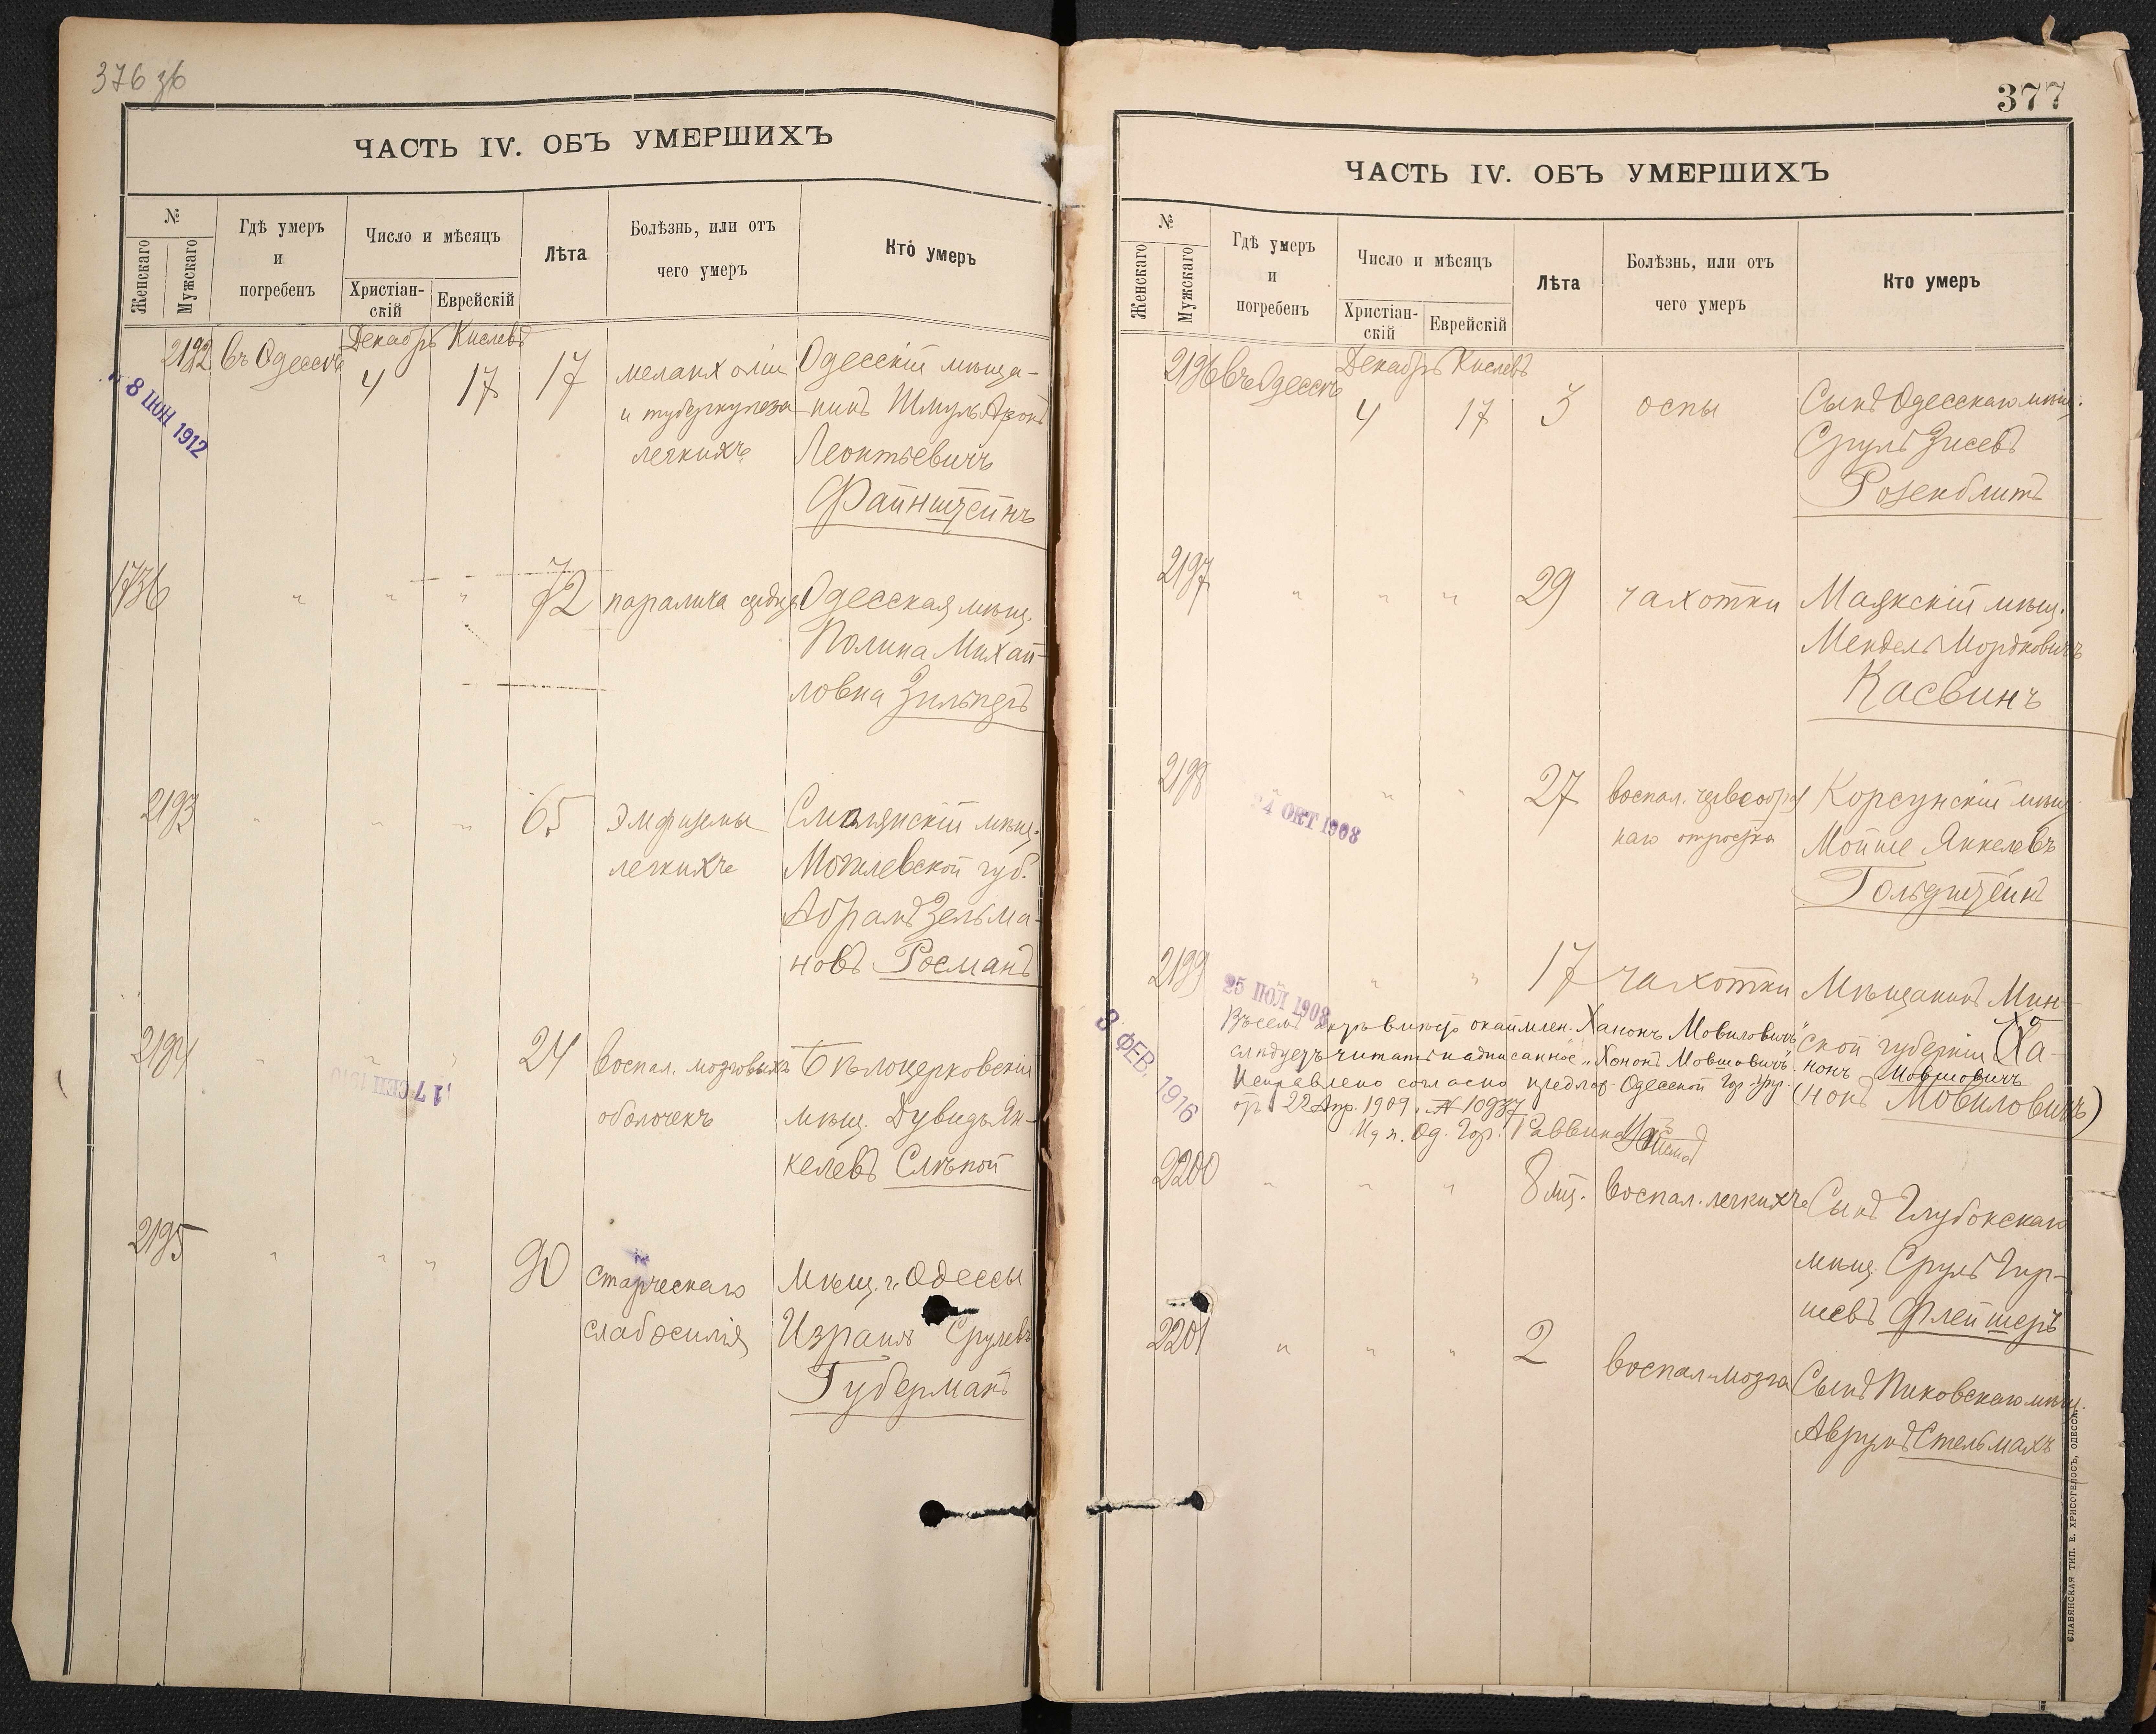 376 зб
ЧАСТЬ IV. ОБЪ УМЕРШИХЪ
№
Женскаго
Мужскаго
Гдѣ умеръ
и
погребенъ
Число и мѣсяцъ
Христіан-
скій
Еврейскій
Лѣта
Болѣзнь, или отъ
чего умеръ
Кто умеръ
2192 въ Одессѣ Декабрь Кислевъ
4 17 17
меланхоліи
и туберкулеза
легкихъ
Одесскій мѣща-
нинъ Шмуль Аронъ
Леонтьевичъ
Файнштейнъ
8 ІЮН 1912
1736 " " " 72 паралича сердца
Одесская мѣщ.
Полина Михай-
ловна
2193 " " " 65
эмфиземы
легкихъ
мѣщ.
Могилевской губ.
Абрамъ Зельма-
новъ Росманъ
2194 " " " 24
воспал. мозговыхъ
оболочекъ
Бѣлоцерковскій
мѣщ. Дувидъ Ян-
келевъ Слѣпой
17 СЕП 1910
2195 " " " 90
старческаго
слабосилія
Мѣщ. г. Одессы
Израиль Срулевъ
Губерманъ
377
ЧАСТЬ IV. ОБЪ УМЕРШИХЪ
№
Женскаго
Мужскаго
Гдѣ умеръ
и
погребенъ
Число и мѣсяцъ
Христіан-
скій
Еврейскій
Лѣта
Болѣзнь, или отъ
чего умеръ
Кто умеръ
2196 въ Одессѣ Декабрь Кислевъ
4 17 3 оспы
Сынъ Одесскаго мѣщ.
Сруль Зисевъ
Розенблитъ
2197 " " " 29 чахотки
Маякскій мѣщ.
Мендель Мордковичъ
Касвинъ
2198 " " " 27
воспал. червеобраз
наго отростка
Корсунскій мѣщ.
Мойше Янкелевъ
Гольдштейнъ
24 ОКТ 1908
2199 " " " 17 чахотки
Мѣщанинъ Мин-
ской губерніи (Ха-
нонъ Мовшовичъ
нонъ Мовиловичъ)
25 ІЮЛ 1908
Въ семъ актѣ вмѣсто окаймлен. "Ханонъ Мовиловичъ"
слѣдуетъ читать надписанное "Хононъ Мовшовичъ".
Исправлено согласно предлож. Одесской Гор. Упр.
отъ 22 Апр. 1909 г. № 10937
И д п. Од. Гор. Раввина
3 ФЕВ. 1916
2200 " " " 8 мѣс. воспал. легкихъ
Сынъ Глубокскаго
мѣщ. Сруль Гер-
шевъ Флейшеръ
2201 " " " 2 воспал. мозга
Сынъ Пиковскаго мѣщ.
Аврумъ Стельмахъ
СЛАВЯНСКАЯ ТИП. Е. ХРИСОГЕЛОСЪ, ОДЕССА.